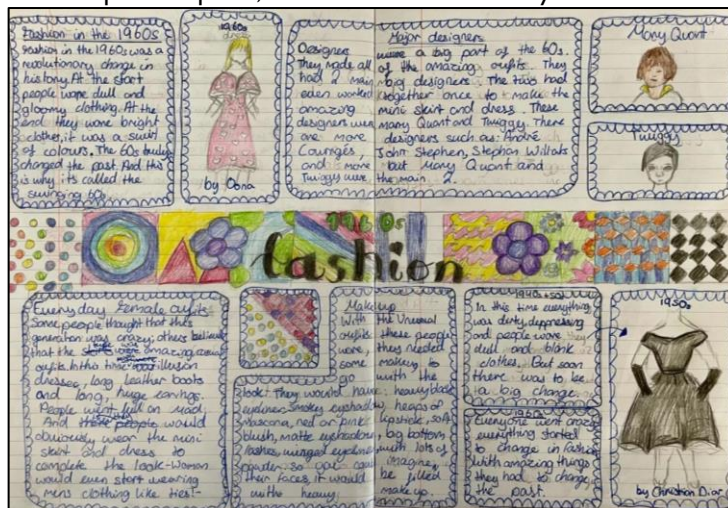 Fashion in the 1960s
Fashion in the 1960s was a
revolutionary change in
history. At the start
people wore dull and
gloomy clothing. At the
end they wore bright
clothes, it was a swirl
of colours. The 60s truley
changed the past And this
is why its called the
swinging 60s
1960s
dress
by Oona
Designers
They made all
had 2 main
even worked
amazing
designers were
are more
Courrèges,
and more
Twiggy were
Major designers
were a big part of the 60s.
of the amazing oufits. They
big designers. The two had
together once to make the
mini skirt and dress. These
Mary Quant and Twiggy. There
designers such as: André
John Stephen, Stephan Willats
but Mary Quant and
the main 2.
Mary Quant
Twiggy
1960s
fashion
Everyday Female oufits
Some people thought that this
generation was crazy; others believe
that the were amazing
oufits. In this time illusion
dresses, long leather boots
and long, huge earings.
People went full on mad,
And these people would
obviously wear the mini
skirt and dress to
complete the look. Woman
would even start wearing
mens clothing like ties!
Makeup
With the Unusual
oufits these people
wore, they needed
some makeup to
go with the
look! They would have: heavy black
eyeliner, smokey eyeshadow, heaps of
mascara, red or pink lipstick, soft
blush, matte eyeshadow, big bottom
lashes, winged eyeliner with lots of
powder. so you could imagine,
their faces, it would be filled
withe heavy makeup.
In this time everything
was dirty, depressing
and people wore
dull and blank
clothes. But soon
there was to be
a big change.
1960s
Everyone went amazing
everything started
to change in fashion
with amazing things
they had to change
the past.
1950s
by Christian Dior